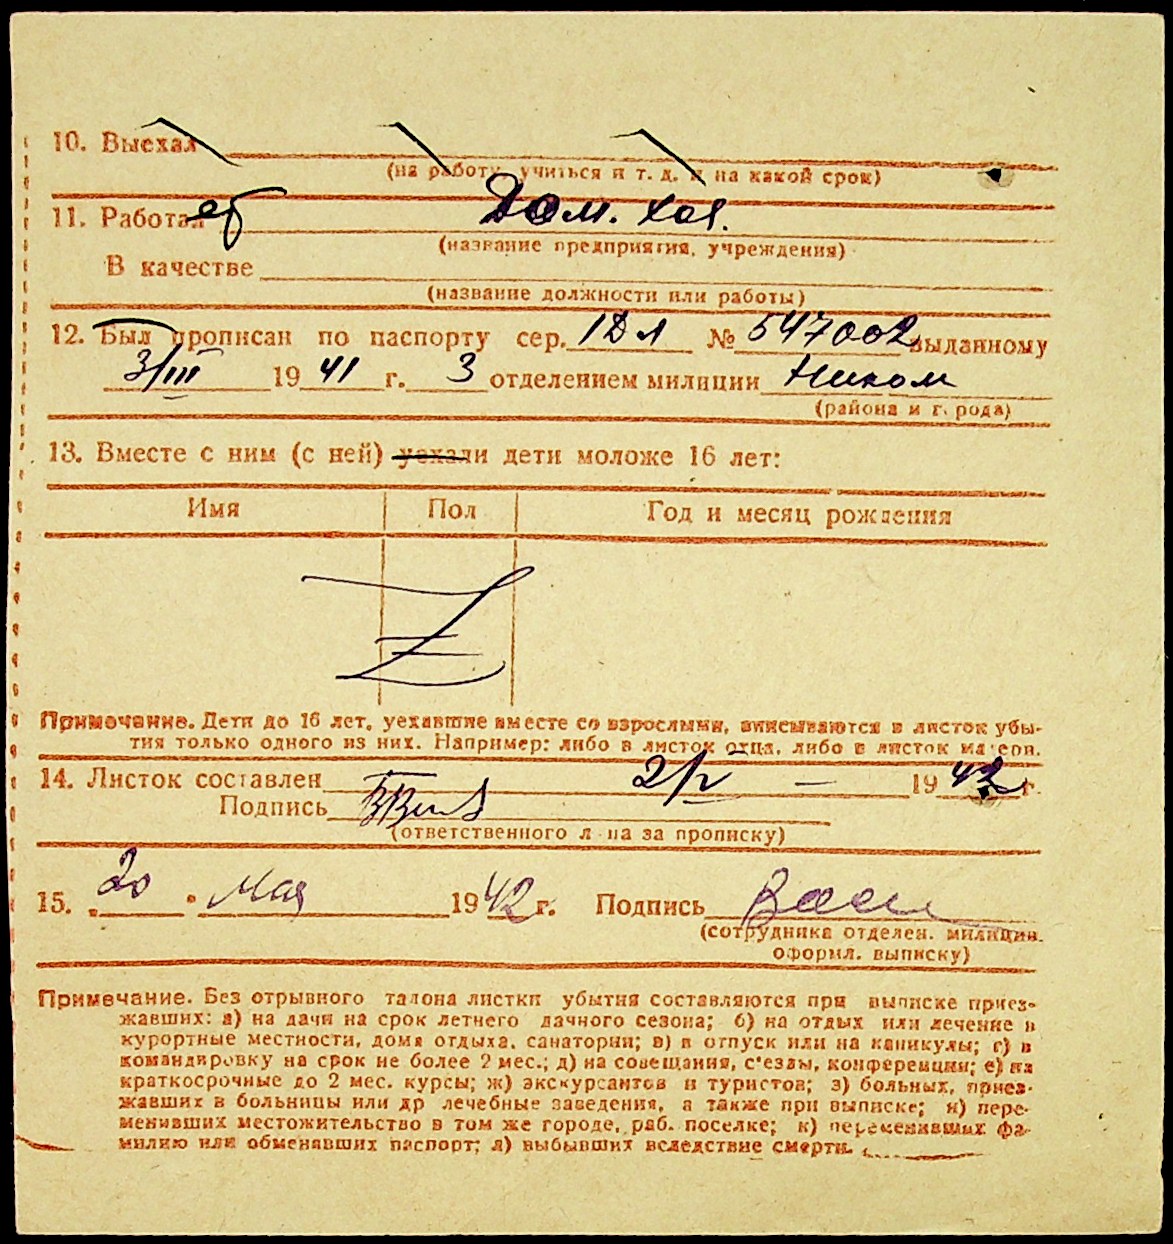 10. Выехал
(на работу, учиться и т. д. и на какой срок)
11. Работал Дом. хоз.
(название предприятия, учреждения)
В качестве
(название должности или работы)
12. Был прописан по паспорту сер. 1Дл № 547002 выданному
3/III 19 41 г. 3 отделением милиции
(района и города)
13. Вместе с ним (с ней) уехали дети моложе 16 лет:
Имя Пол Год и месяц рождения
Примечание. Дети до 16 лет, уехавшие вместе со взрослыми, вписываются в листок убы-
тия только одного из них. Например: либо в листок отца, либо в листок матери.
14. Листок составлен 2/V – 19 42 г.
Подпись
(ответственного л-ца за прописку)
15. 20 • Мая 19 42 г. Подпись
(сотрудника отделен. милиции.
оформл. выписку)
Примечание. Без отрывного талона листки убытия составляются при выписке приез-
жавших: а) на дачи на срок летнего дачного сезона; б) на отдых или лечение в
курортные местности, дома отдыха, санатории; в) в отпуск или на каникулы; г) в
командировку на срок не более 2 мес.; д) на совещания, с'езды, конференции; е) на
краткосрочные до 2 мес. курсы; ж) экскурсантов и туристов; з) больных, приез-
жавших в больницы или др лечебные заведения, а также при выписке; и) пере-
менивших местожительство в том же городе, раб. поселке; к) переменивших фа-
милию или обменявших паспорт; л) выбывших вследствие смерти.